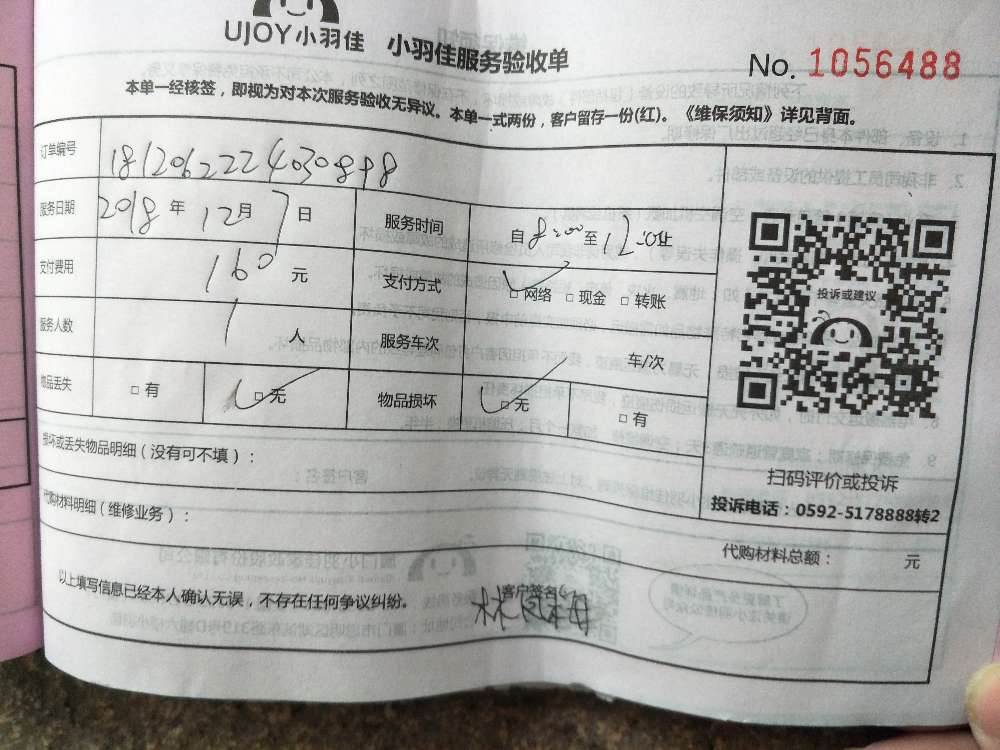 UJOY小羽佳 小羽佳服务验收单
No. 1056488
本单一经核签，即视为对本次服务验收无异议。本单一式两份，客户留存一份(红)。《维保须知》详见背面。
订单编号 1812062224030898
服务日期 2018年12月7日 服务时间 自8:00至12:00止
支付费用 160元 支付方式 □网络 □现金 □转账
服务人数 1人 服务车次 车/次
物品丢失 □有 □无 物品损坏 □无 □有
投诉或建议
扫码评价或投诉
投诉电话：0592-5178888转2
损坏或丢失物品明细（没有可不填）：
代购材料明细（维修业务）：
代购材料总额： 元
以上填写信息已经本人确认无误，不存在任何争议纠纷。
客户签名
林凤梅